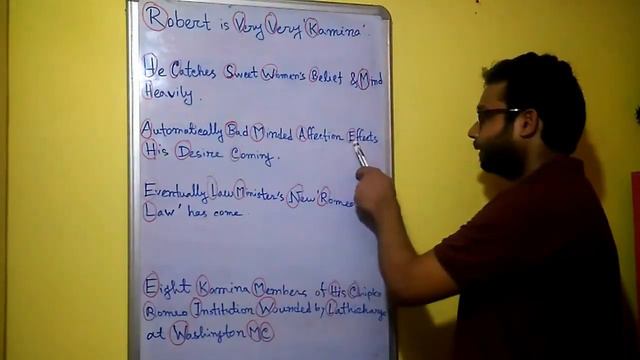 Robert is Very Very 'Kamina'.
He Catches Sweet Women's Belief & Mind
Heavily.
Automatically Bad Minded Affection Effects
His Desire Coming.
Eventually Law Minister's New 'Romeo
Law' has come
Eight Kamina Members of His Chipko
Romeo Institution Wounded by Lathicharge
at Washington MC